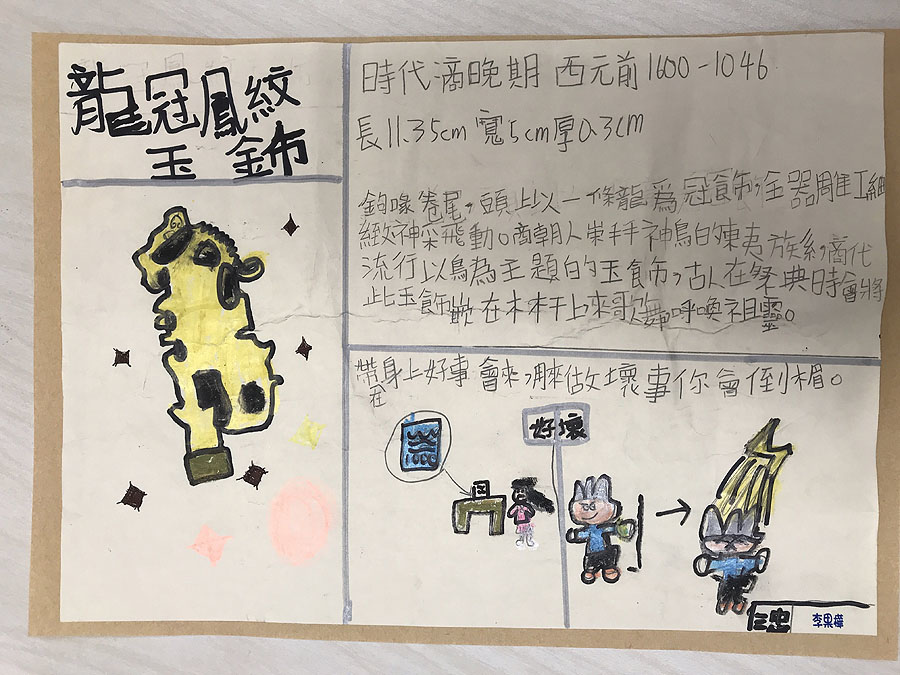 龍冠鳳紋
玉飾
時代商晚期 西元前1600-1046
長11.35cm 寬5cm厚0.3cm
鉤喙卷尾,頭上以一條龍為冠飾,全器雕工細
緻神采飛動。商朝人崇拜神鳥的東夷族系,商代
流行以鳥為主題的玉飾,古人在祭典時會將
此玉飾嵌在木杆上來歌舞呼喚祖靈。
帶在身上好事會來,用來做壞事你會倒楣。
好壞
1000
仁忠
李果樺